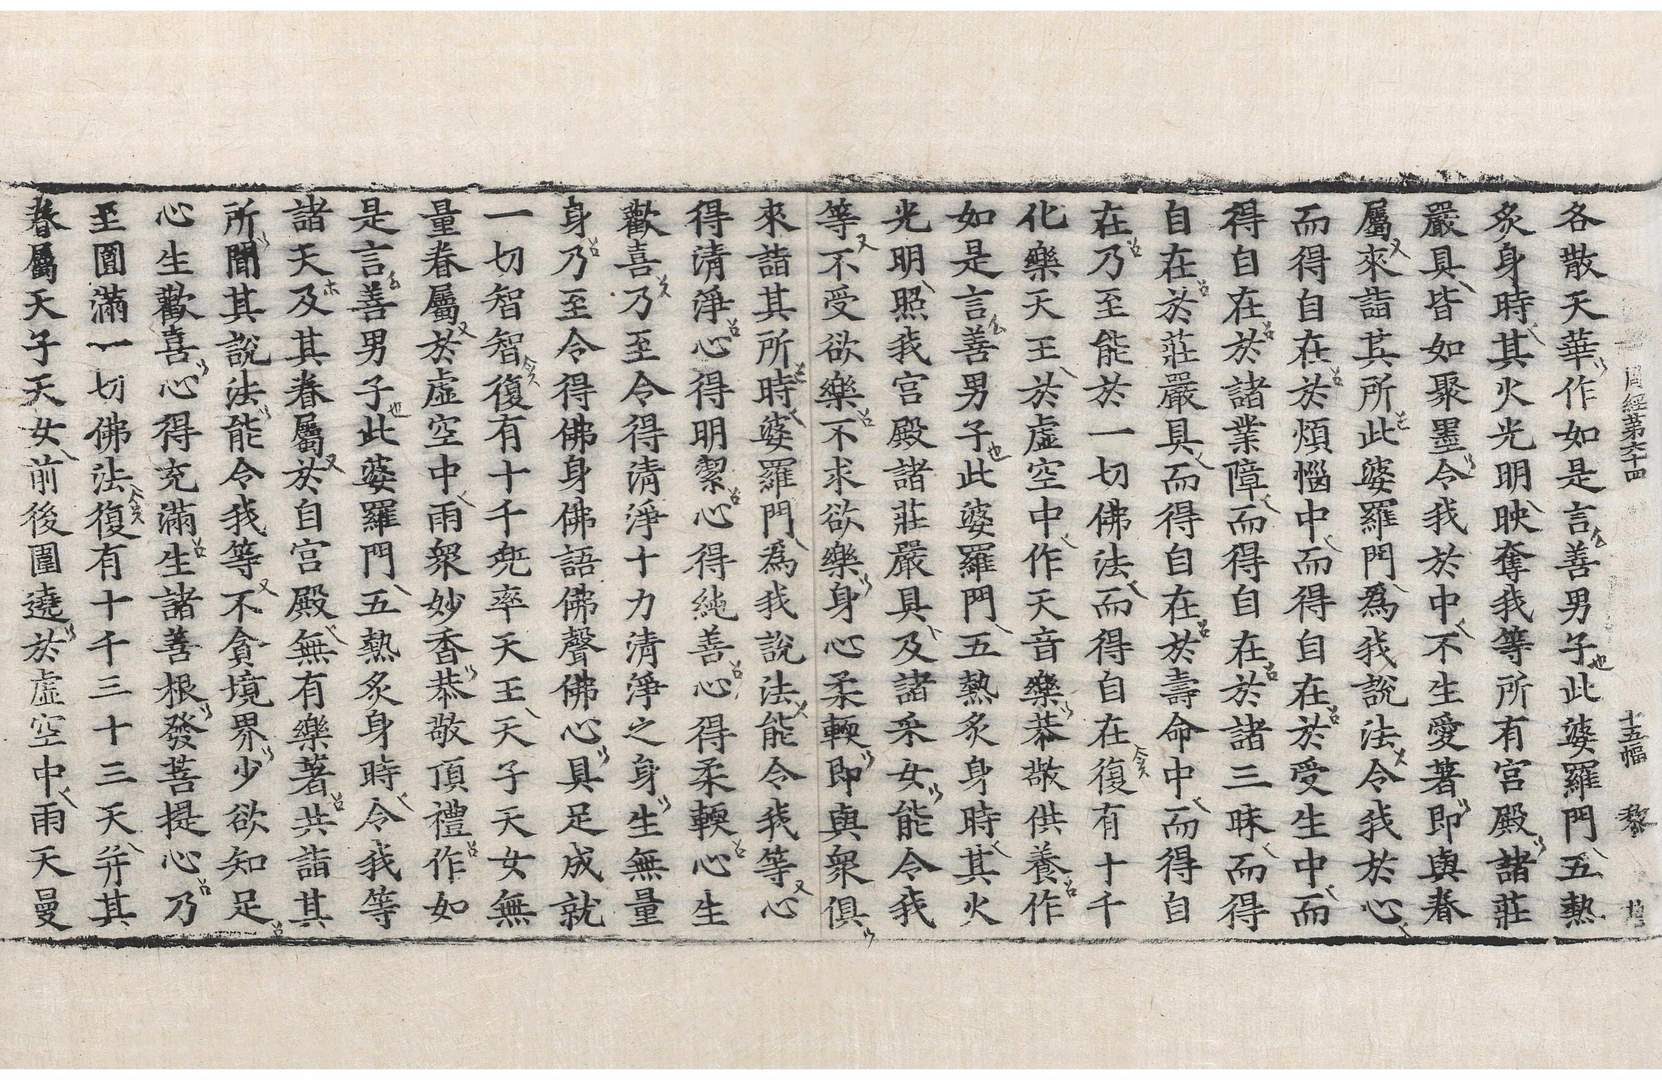 周經第六十四 十五幅 黎
各散天華作如是言善男子此婆羅門五熱
炙身時其火光明映奪我等所有宮殿諸莊
嚴具皆如聚墨令我於中不生愛著即與眷
屬來詣其所此婆羅門為我說法令我於心
而得自在於煩惱中而得自在於受生中而
得自在於諸業障而得自在於諸三昧而得
自在於莊嚴具而得自在於壽命中而得自
在乃至能於一切佛法而得自在復有十千
化樂天王於虛空中作天音樂恭敬供養作
如是言善男子此婆羅門五熱炙身時其火
光明照我宮殿諸莊嚴具及諸采女能令我
等不受欲樂不求欲樂身心柔輭即與眾俱
來詣其所時婆羅門為我說法能令我等心
得清淨心得明絜心得純善心得柔輭心生
歡喜乃至令得清淨十力清淨之身生無量
身乃至令得佛身佛語佛聲佛心具足成就
一切智智復有十千兜率天王天子天女無
量眷屬於虛空中雨眾妙香恭敬頂禮作如
是言善男子此婆羅門五熱炙身時令我等
諸天及其眷屬於自宮殿無有樂著共詣其
所聞其說法能令我等不貪境界少欲知足
心生歡喜心得充滿生諸善根發菩提心乃
至圓滿一切佛法復有十千三十三天并其
眷屬天子天女前後圍遶於虛空中雨天曼